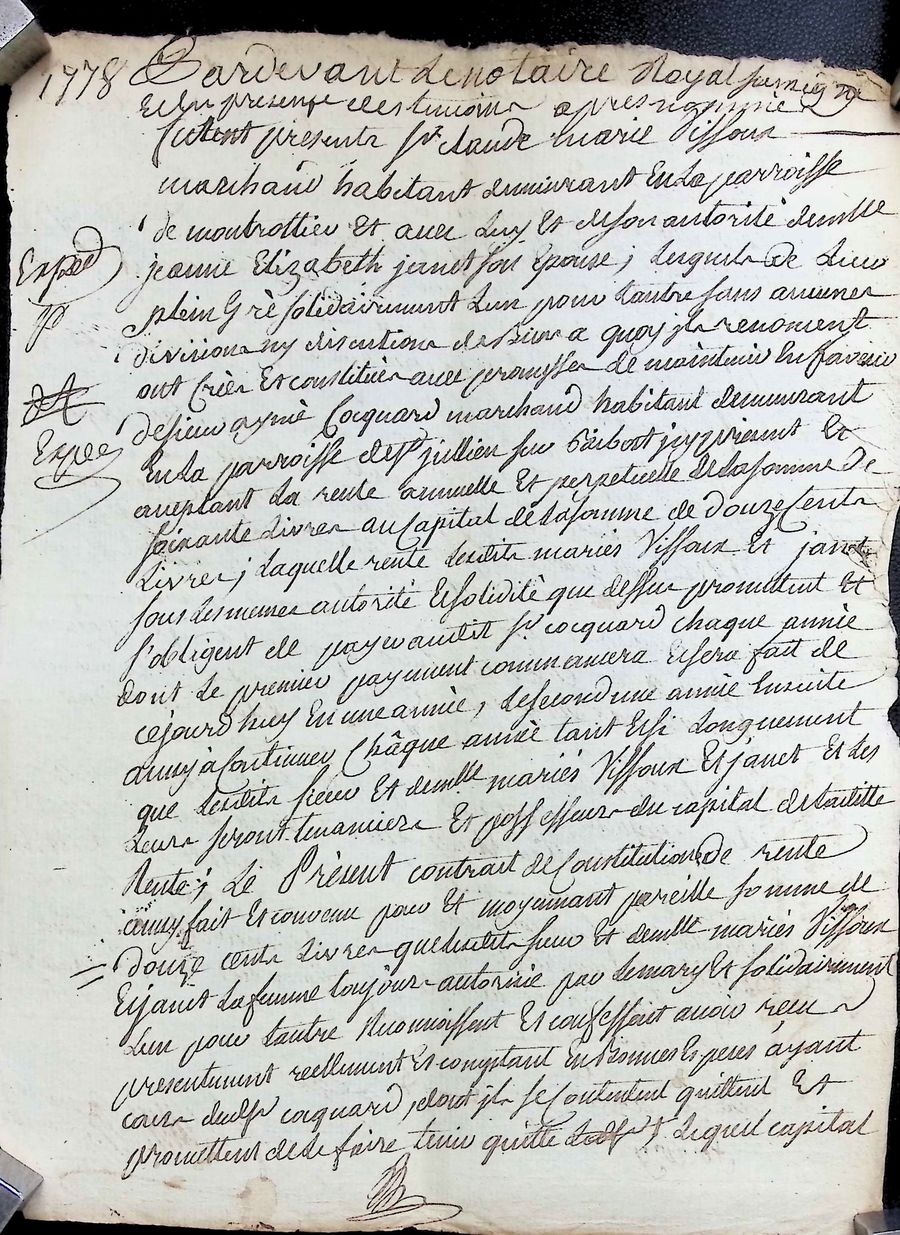 1778 Pardevant Le notaire Royal soussigné
En la presence des temoins apres nommés
furent presents Sr claude marie Vissoux
marchand habitant demeurant En la parroisse
de montrottier Et avec luy Et de son autorité demlle
jeanne Elizabeth janet son Epouse ; lesquels de Leur
Exped
plein Gré solidairement L'un pour L'autre sans aucunes
p
divisions ny discutions de Biens a quoy jls renoncent
ont Créés Et constitués avec promesses de maintenir En faveur
de sieur aymé Cocquard marchand habitant demeurant
Exped
En la parroisse de St jullien sur Bibost jcy present Et
aceptant La rente annuelle Et perpetuelle de La somme de
soixante Livres au Capital de La somme de douze Cents
Livres ; laquelle rente lesdits mariés Vissoux Et janet
sous les memes autorité Et solidité que dessus promettent Et
s'obligent de payer audit Sr cocquard chaque année
dont Le premier payement commancera Et sera fait de
cejourd'huy En une année, le second une année Ensuite
ainsy a Continuer Châque année tant Et si Longuement
que lesdits sieur Et demlle mariés Vissoux Et janet Et Les
Leurs seront tenanciers Et possesseurs du capital de Laditte
Rente ; Le Présent contrait de Constitution de rente
ainsy fait Et convenu pour Et moyennant pareille somme de
douze cents Livres que lesdits sieur Et demlle mariés Vissoux
Et janet La femme toujours autorisée par le mary Et solidairement
L'un pour L'autre Reconnoissent Et confessent avoir reçu
presentement reellement Et comptant En Bonnes Especes ayant
cours dudt Sr cocquard, dont jls se Contentent quittent Et
promettent de Le faire tenir quitte Lequel capital